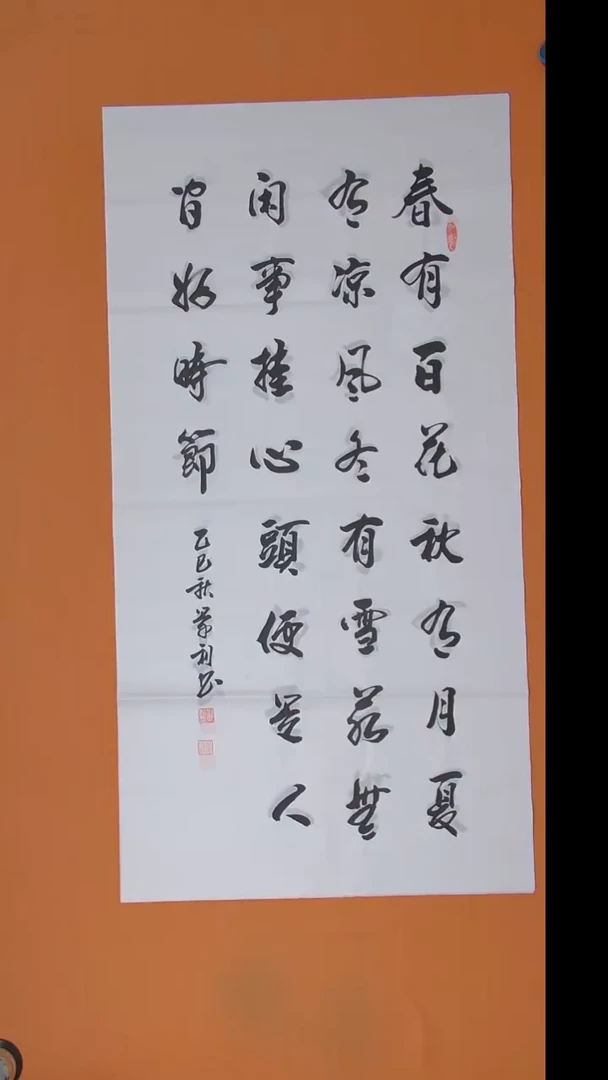 春有百花秋有月夏
有凉风冬有雪若無
闲事挂心頭便是人
间好時節
乙巳秋